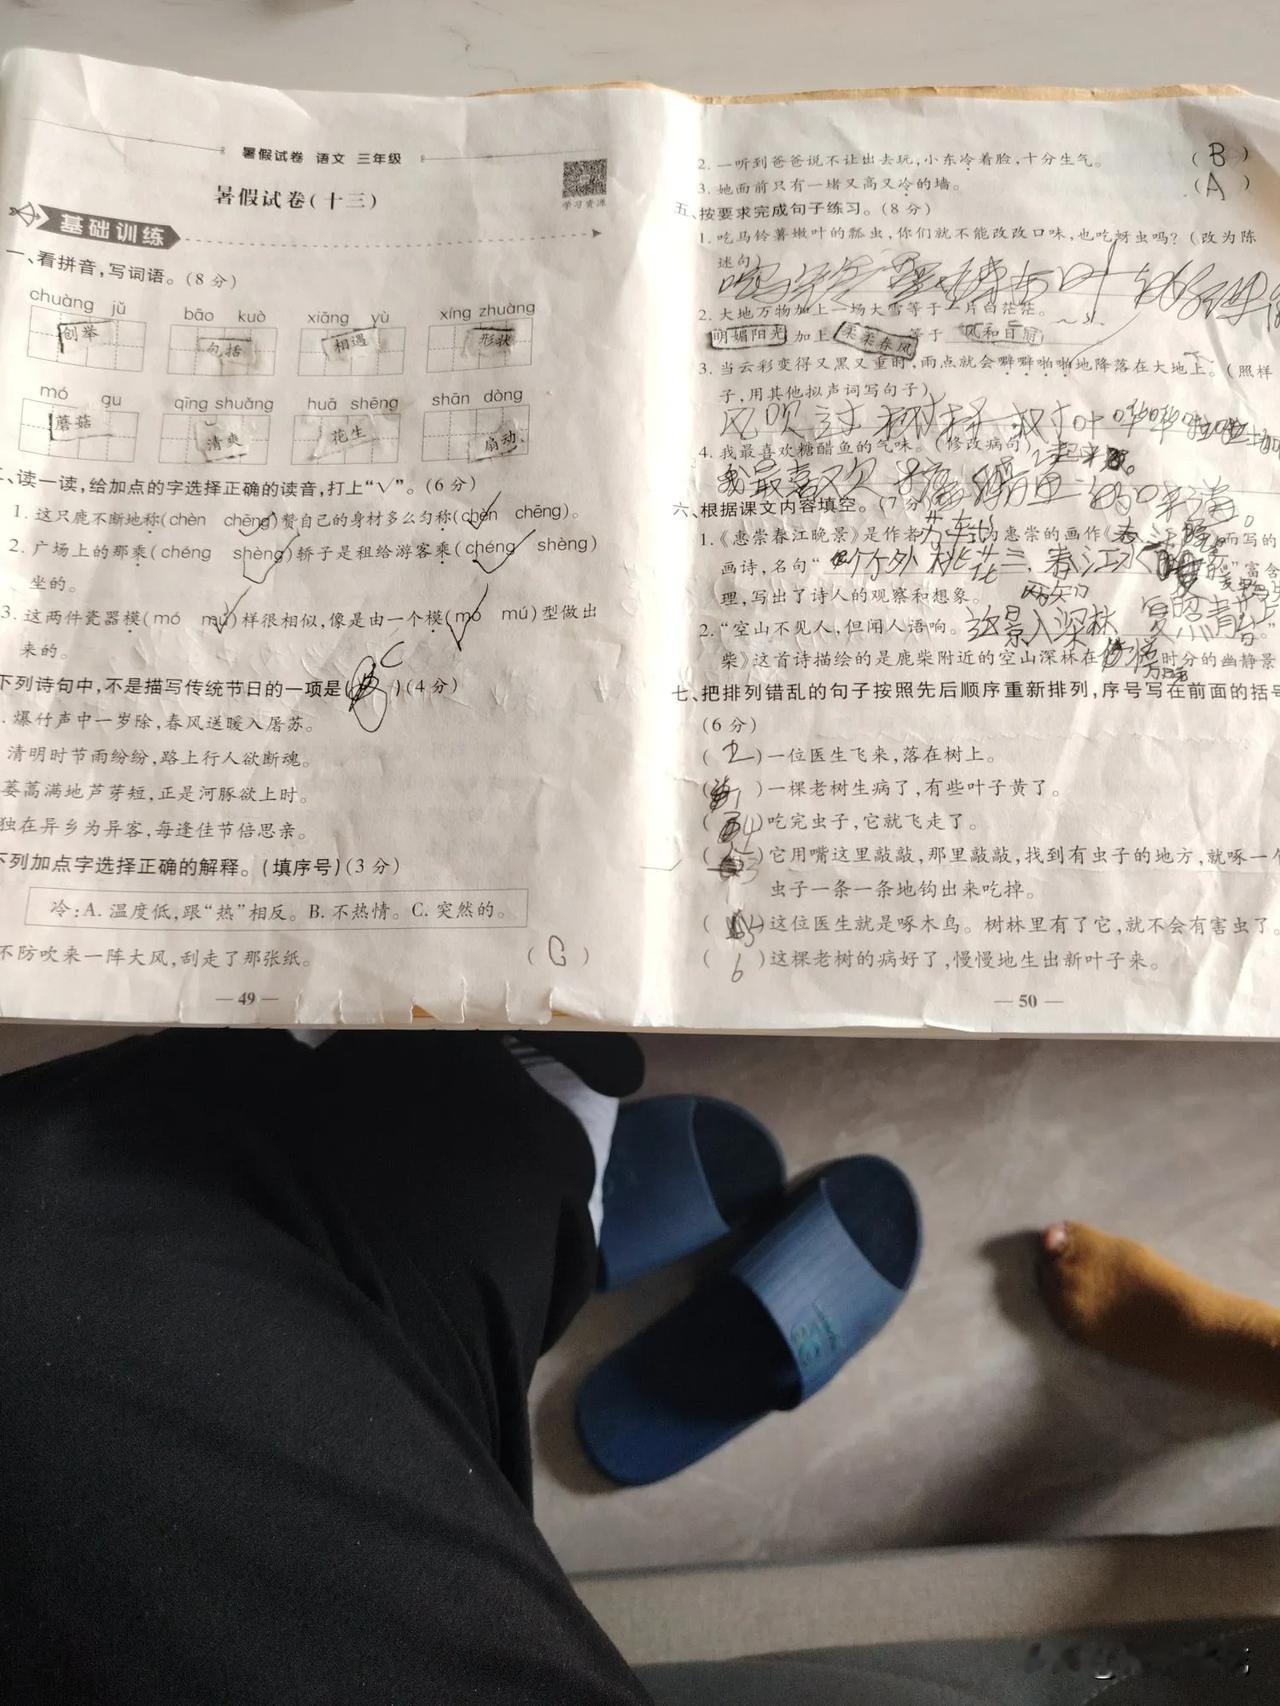 暑假试卷 语文 三年级
暑假试卷(十三)
学习资源
基础训练
一、看拼音,写词语。(8分)
chuàng jǔ bāo kuò xiāng yù xíng zhuàng
创举 包括 相遇 形状
mó gu qīng shuǎng huā shēng shān dòng
蘑菇 清爽 花生 扇动
、读一读,给加点的字选择正确的读音,打上“√”。(6分)
1. 这只鹿不断地称(chèn chēng)赞自己的身材多么匀称(chèn chēng)。
2. 广场上的那乘(chéng shèng)轿子是租给游客乘(chéng shèng)
坐的。
3. 这两件瓷器模(mó mú)样很相似,像是由一个模(mó mú)型做出
来的。
下列诗句中,不是描写传统节日的一项是( C )(4分)
. 爆竹声中一岁除,春风送暖入屠苏。
清明时节雨纷纷,路上行人欲断魂。
蒌蒿满地芦芽短,正是河豚欲上时。
独在异乡为异客,每逢佳节倍思亲。
下列加点字选择正确的解释。(填序号)(3分)
冷:A. 温度低,跟“热”相反。B. 不热情。C. 突然的。
不防吹来一阵大风,刮走了那张纸。 ( C )
— 49 —
2. 一听到爸爸说不让出去玩,小东冷着脸,十分生气。 ( B )
3. 她面前只有一堵又高又冷的墙。 ( A )
五、按要求完成句子练习。(8分)
1. 吃马铃薯嫩叶的瓢虫,你们就不能改改口味,也吃蚜虫吗?(改为陈
述句)
吃马铃薯嫩叶
2. 大地万物加上一场大雪等于一片白茫茫。
明媚阳光 加上 柔柔春风 等于 风和日丽
3. 当云彩变得又黑又重时,雨点就会噼噼啪啪地降落在大地上。(照样
子,用其他拟声词写句子)
风吹过树林 树叶哗哗啦啦地响
4. 我最喜欢糖醋鱼的气味。(修改病句) 起来。
我最喜欢糖醋鱼的味道。
六、根据课文内容填空。(7分)
1.《惠崇春江晚景》是作者苏轼为惠崇的画作《春江晚景》而写的
画诗,名句“竹外桃花三两枝,春江水暖 ”富含
理,写出了诗人的观察和想象。
2.“空山不见人,但闻人语响。返景入深林,复照青苔上。”
柴》这首诗描绘的是鹿柴附近的空山深林在傍晚时分的幽静景
七、把排列错乱的句子按照先后顺序重新排列,序号写在前面的括号
(6分)
( 2 )一位医生飞来,落在树上。
( 1 )一棵老树生病了,有些叶子黄了。
( 4 )吃完虫子,它就飞走了。
( 3 )它用嘴这里敲敲,那里敲敲,找到有虫子的地方,就啄一个
虫子一条一条地钩出来吃掉。
( 5 )这位医生就是啄木鸟。树林里有了它,就不会有害虫了。
( 6 )这棵老树的病好了,慢慢地生出新叶子来。
— 50 —